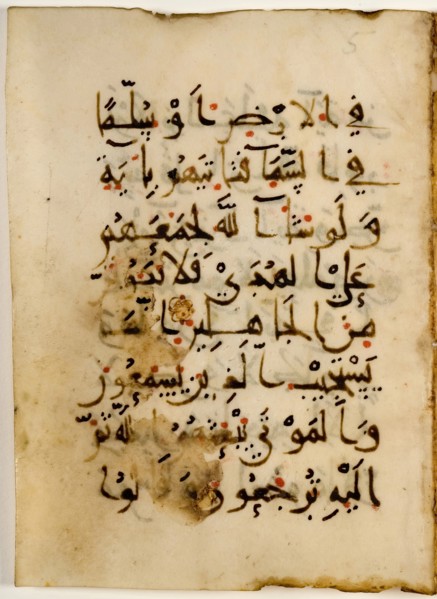 في الارض او سلما
في السما فتاتيهم باية
ولو شا الله لجمعهم
على الهدى فلا تكونن
من الجاهلين انما
يستجيب الذين يسمعون
والموتى يبعثهم الله ثم
اليه يرجعون وقالوا
5